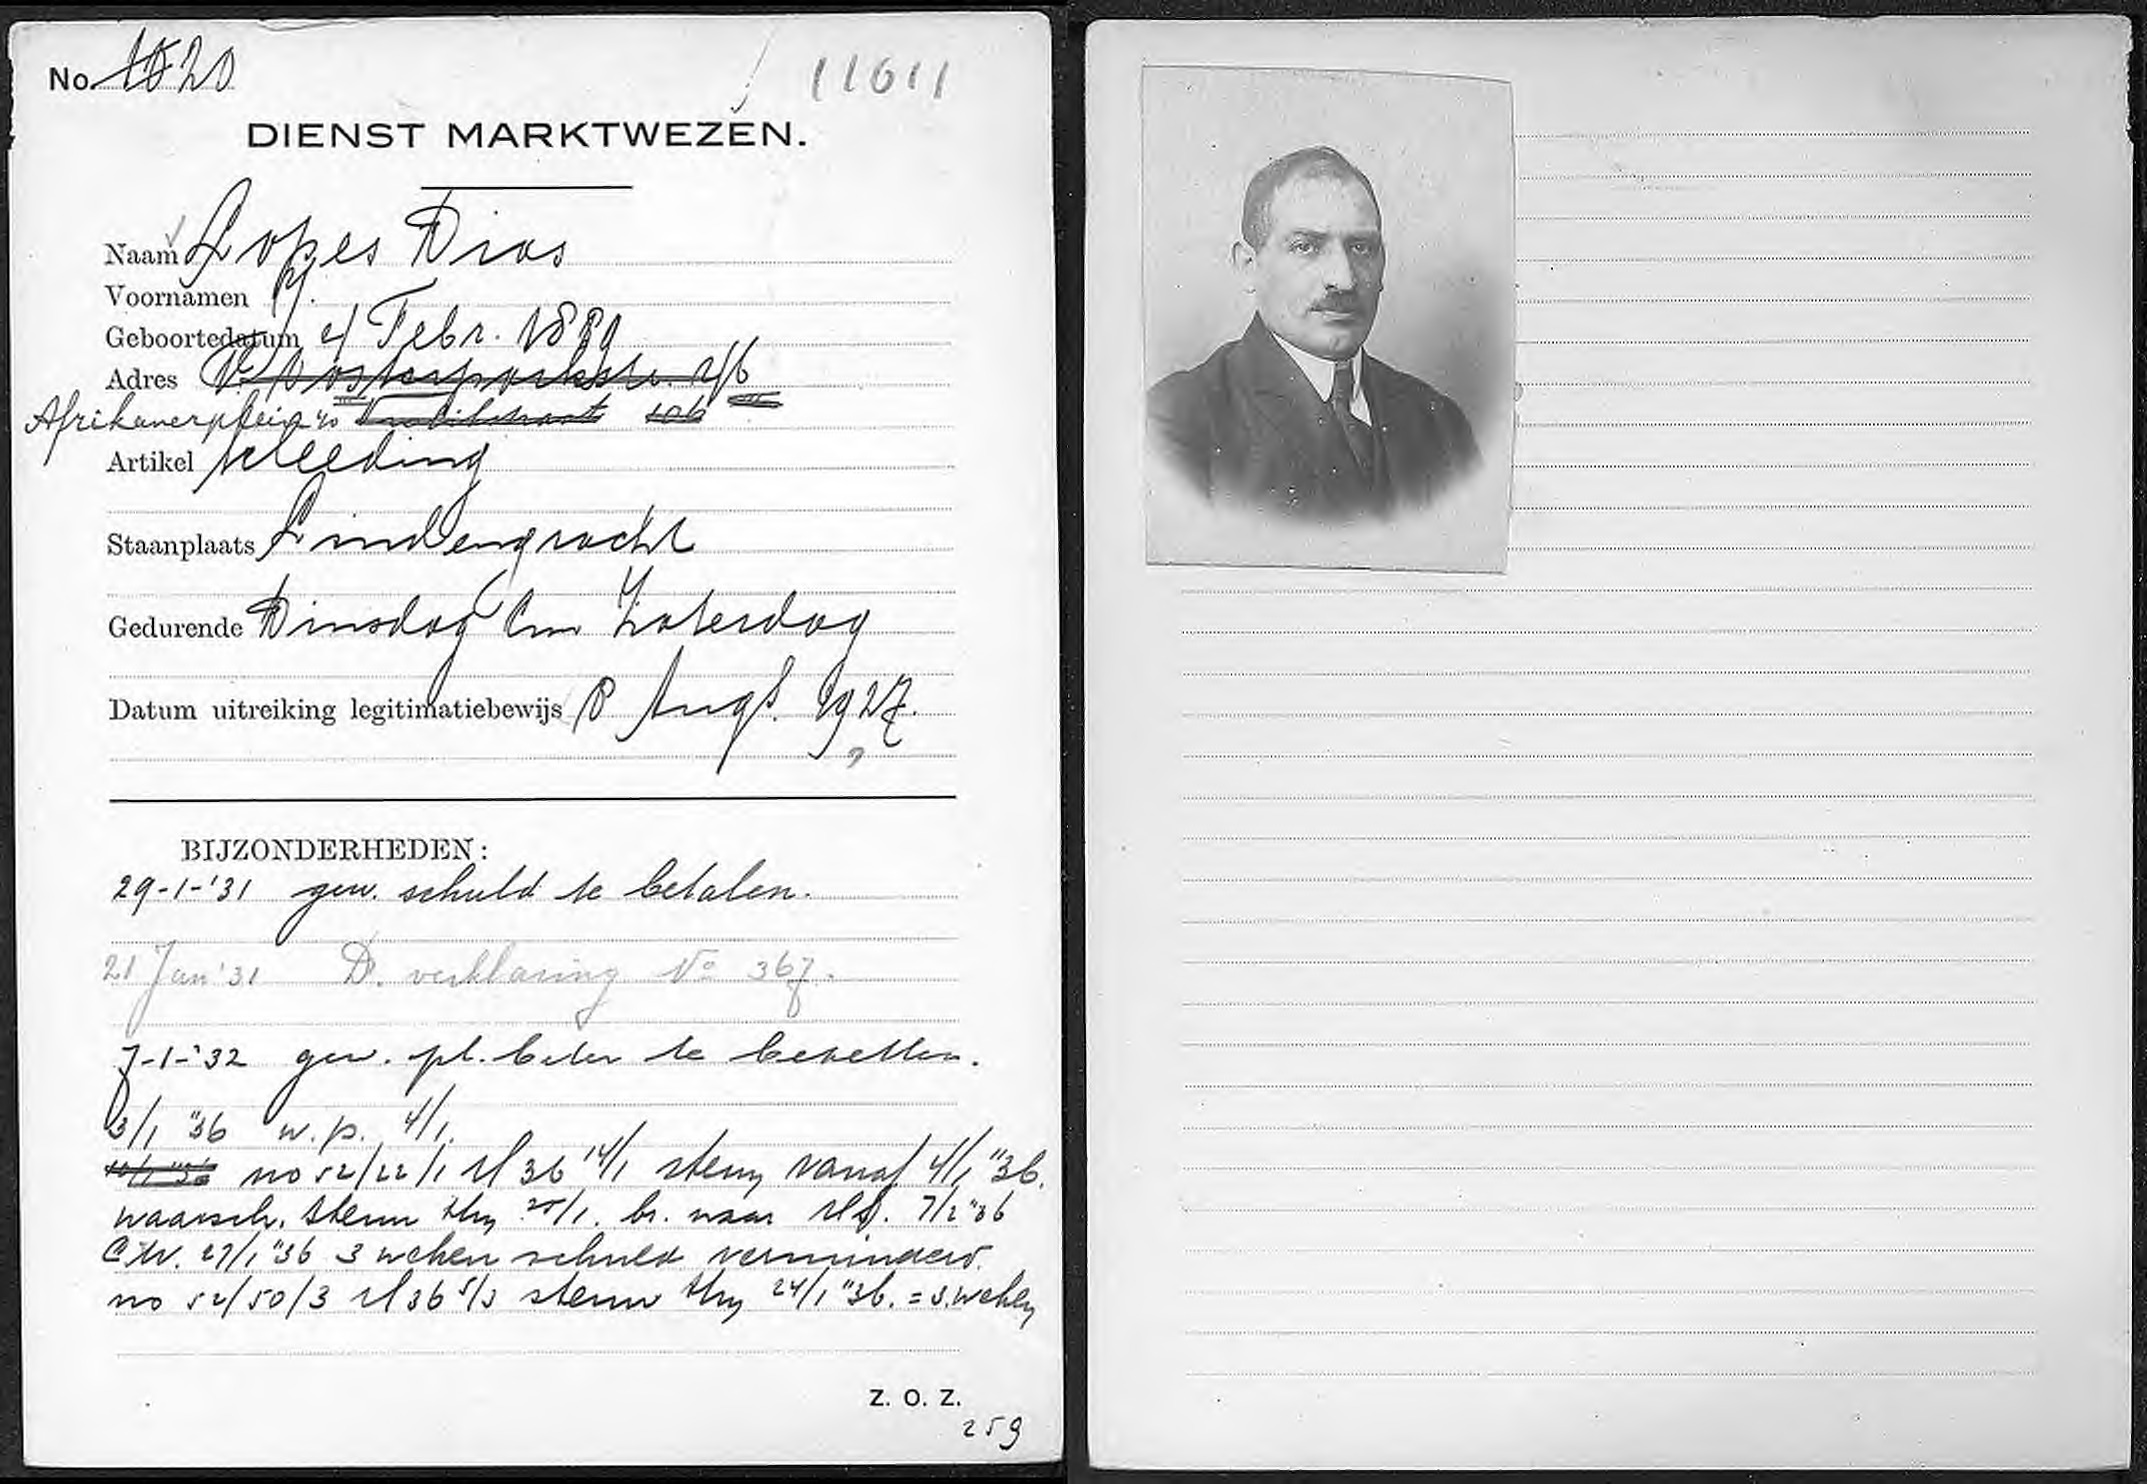 No. 1020
11611
DIENST MARKTWEZEN.
Naam Lopes Dias
Voornamen
Geboortedatum 4 Febr. 1889
Adres Oosterparkstr.
Afrikanerplein
Artikel kleeding
Staanplaats Lindengracht
Gedurende Dinsdag en Zaterdag
Datum uitreiking legitimatiebewijs 8 Augs. 1927.
BIJZONDERHEDEN:
29-1-'31 gew. schuld te betalen.
21 Jan '31 D. verklaring No 367.
7-1-'32 gew. pl. beter te bezetten.
3/1 "36 w.p. 4/1.
no 52/22/1 36 14/1 steun vanaf 4/1 "36.
waarsch. steun 25/1. br. naar 7/2 "36
27/1 "36 3 weken schuld verminderd.
no 52/50/3 36 5/3 steun 24/1 "36. = 3 weken
Z. O. Z.
259